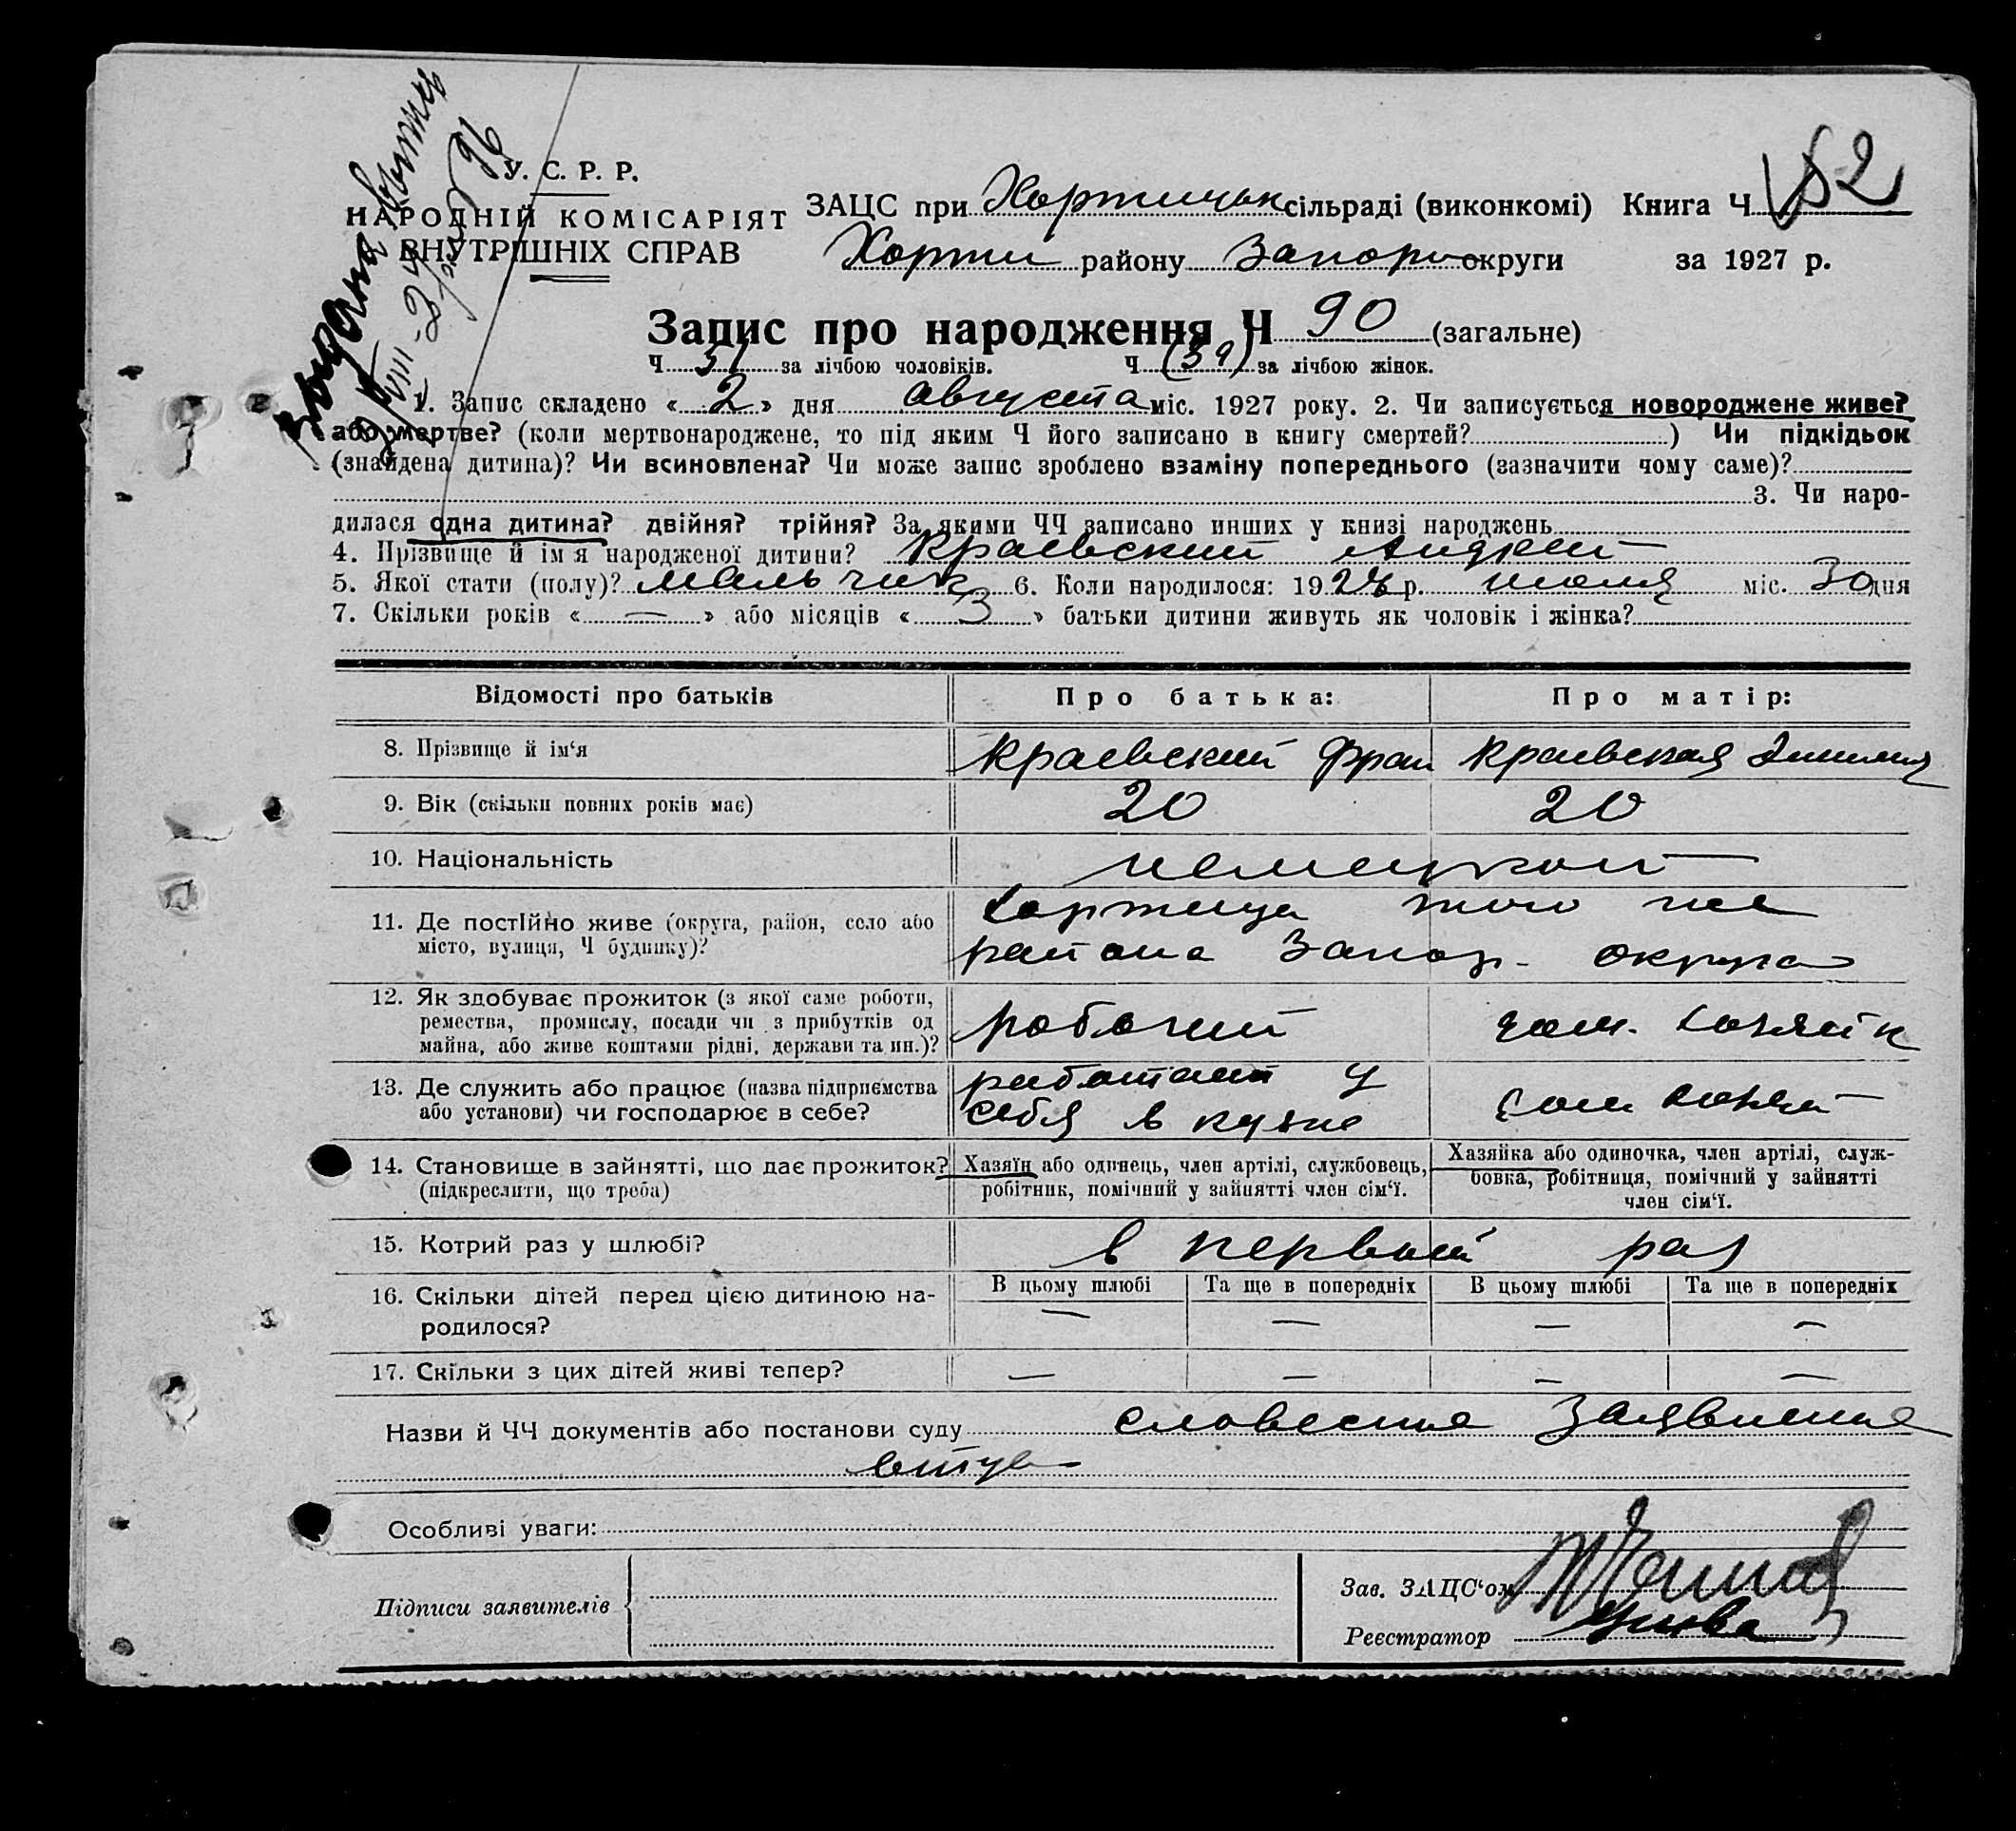 Видана выпись
У. С. Р. Р.
НАРОДНІЙ КОМІСАРІЯТ
ВНУТРІШНІХ СПРАВ
ЗАЦС при Хортицьк сільраді (виконкомі) Книга Ч
Хорти району Запори округи за 1927 р.
Запис про народження Ч 90 (загальне)
Ч 51 за лічбою чоловіків. Ч (39) за лічбою жінок.
1. Запис складено « 2 » дня августа міс. 1927 року. 2. Чи записується новороджене живе?
або мертве? (коли мертвонароджене, то під яким Ч його записано в книгу смертей? ) Чи підкідьок
(знайдена дитина)? Чи всиновлена? Чи може запис зроблено взаміну попереднього (зазначити чому саме)?
3. Чи наро-
дилася одна дитина? двійня? трійня? За якими ЧЧ записано инших у книзі народжень
4. Прізвище й ім'я народженої дитини? Краевский Андрей
5. Якої стати (полу)? мальчик 6. Коли народилося: 19 р. июля міс. 30 дня
7. Скільки років « — » або місяців « 3 » батьки дитини живуть як чоловік і жінка?
Відомості про батьків Про батька: Про матір:
8. Прізвище й ім'я Краевский Фран Краевская
9. Вік (скільки повних років має) 20 20
10. Національність немецкой
11. Де постійно живе (округа, район, село або
місто, вулиця, Ч будинку)?
Хортица того же
района Запор. округа
12. Як здобуває прожиток (з якої саме роботи,
ремества, промислу, посади чи з прибутків од
майна, або живе коштами рідні, держави та ин.)?
рабочий дом. хозяйк
13. Де служить або працює (назва підприємства
або установи) чи господарює в себе?
работает у
себя в кузне
дом хозяй
14. Становище в зайнятті, що дає прожиток?
(підкреслити, що треба)
Хазяїн або одинець, член артілі, службовець,
робітник, помічний у зайнятті член сім'ї.
Хазяйка або одиночка, член артілі, служ-
бовка, робітниця, помічний у зайнятті
член сім'ї.
15. Котрий раз у шлюбі? в первый раз
16. Скільки дітей перед цією дитиною на-
родилося?
В цьому шлюбі Та ще в попередніх В цьому шлюбі Та ще в попередніх
— — — —
17. Скільки з цих дітей живі тепер? — — — —
Назви й ЧЧ документів або постанови суду словесние Заявление
Особливі уваги:
Підписи заявителів
Зав. ЗАЦС'ом
Реєстратор